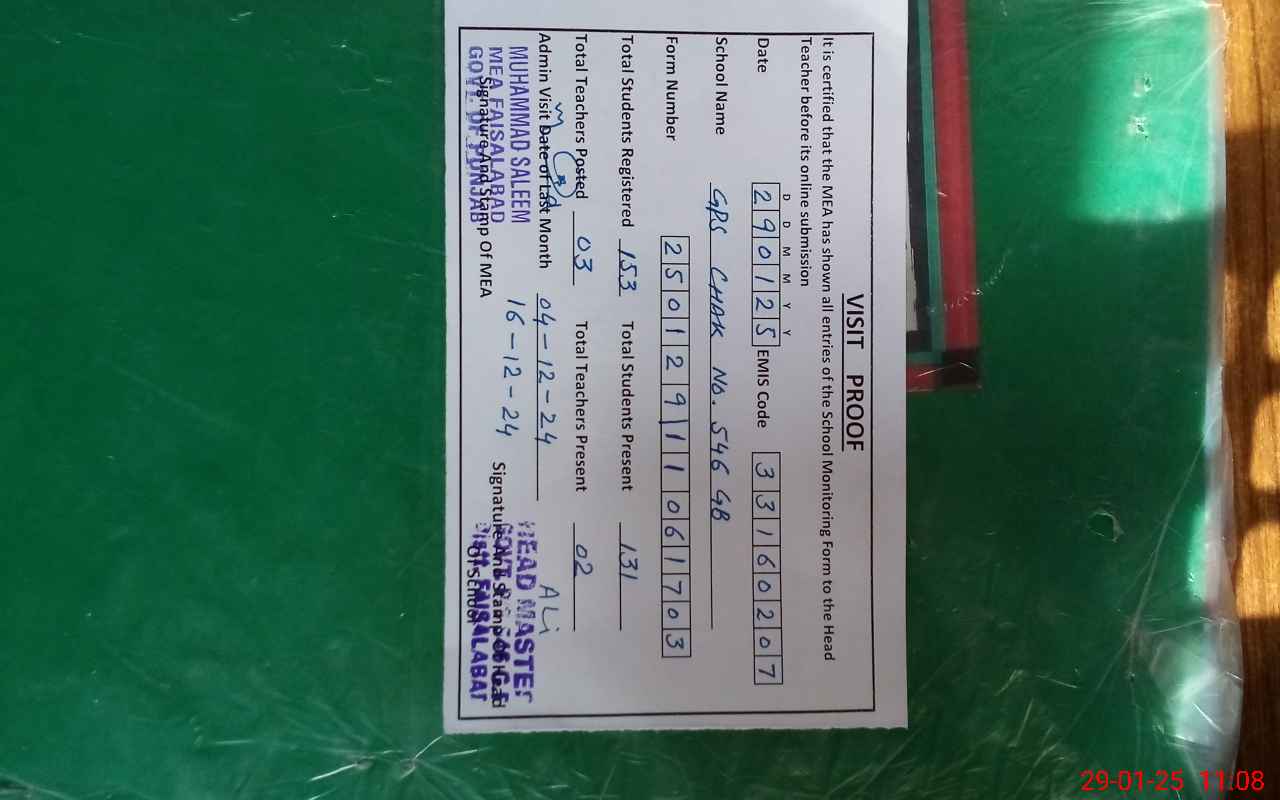 VISIT PROOF
It is certified that the MEA has shown all entries of the School Monitoring Form to the Head
Teacher before its online submission
D D M M Y Y
Date 2 9 0 1 2 5 EMIS Code 3 3 1 6 0 2 0 7
School Name GPS CHAK No. 546 GB
Form Number 2 5 0 1 2 9 1 1 0 6 1 7 0 3
Total Students Registered 153 Total Students Present 131
Total Teachers Posted 03 Total Teachers Present 02
Admin Visit Date of Last Month 04-12-24
16-12-24
ALi
MUHAMMAD SALEEM
MEA FAISALABAD
GOVT. OF PUNJAB
Signature And Stamp Of MEA
Signature And Stamp Of Head
Of School
HEAD MASTER
Distt. FAISALABAD
29-01-25 11:08